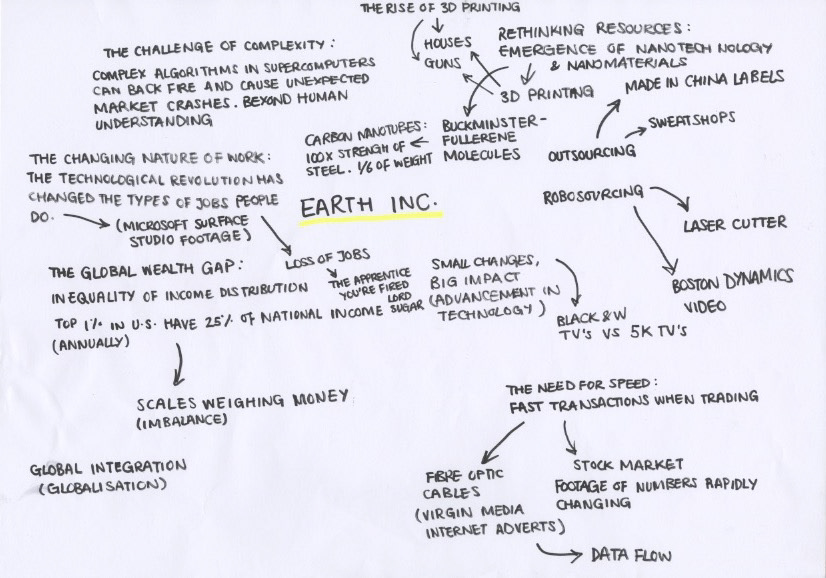 THE RISE OF 3D PRINTING
HOUSES
GUNS
RETHINKING RESOURCES:
EMERGENCE OF NANOTECHNOLOGY
& NANOMATERIALS
3D PRINTING
BUCKMINSTER-
FULLERENE
MOLECULES
CARBON NANOTUBES:
100X STRENGH OF
STEEL. 1/6 OF WEIGHT
THE CHALLENGE OF COMPLEXITY:
COMPLEX ALGORITHMS IN SUPERCOMPUTERS
CAN BACK FIRE AND CAUSE UNEXPECTED
MARKET CRASHES. BEYOND HUMAN
UNDERSTANDING
MADE IN CHINA LABELS
SWEATSHOPS
OUTSOURCING
ROBOSOURCING
LASER CUTTER
BOSTON DYNAMICS
VIDEO
THE CHANGING NATURE OF WORK:
THE TECHNOLOGICAL REVOLUTION HAS
CHANGED THE TYPES OF JOBS PEOPLE
DO.
(MICROSOFT SURFACE
STUDIO FOOTAGE)
EARTH INC.
LOSS OF JOBS
THE APPRENTICE
YOU'RE FIRED
LORD
SUGAR
THE GLOBAL WEALTH GAP:
INEQUALITY OF INCOME DISTRIBUTION
TOP 1% IN U.S. HAVE 25% OF NATIONAL INCOME
(ANNUALLY)
SCALES WEIGHING MONEY
(IMBALANCE)
SMALL CHANGES,
BIG IMPACT
(ADVANCEMENT IN
TECHNOLOGY)
BLACK & W
TV'S VS 5K TV'S
GLOBAL INTEGRATION
(GLOBALISATION)
THE NEED FOR SPEED:
FAST TRANSACTIONS WHEN TRADING
FIBRE OPTIC
CABLES
(VIRGIN MEDIA
INTERNET ADVERTS)
DATA FLOW
STOCK MARKET
FOOTAGE OF NUMBERS RAPIDLY
CHANGING